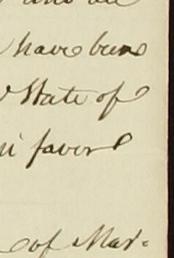 have been
State of
in favor
of Mar-